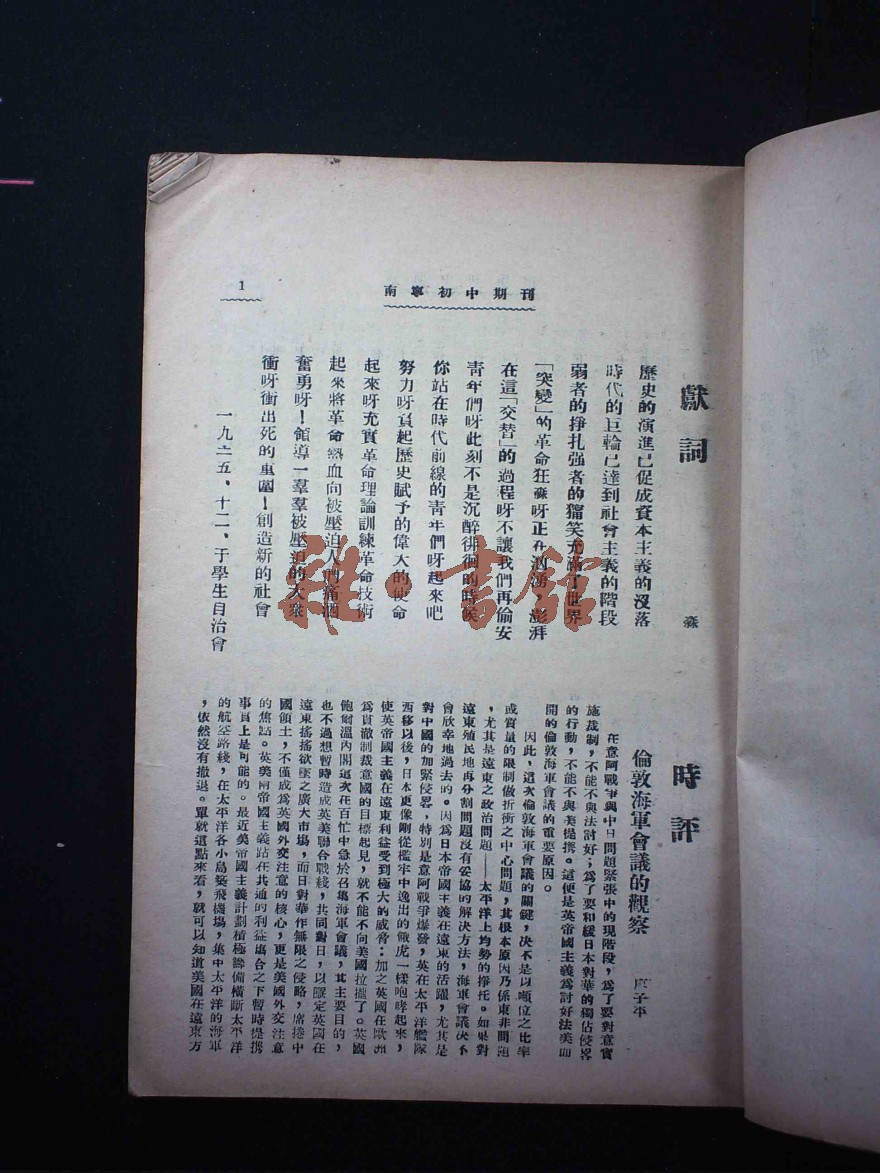 南寧初中期刊
1
獻詞
森
歷史的演進已促成資本主義的沒落
時代的巨輪已達到社會主義的階段
弱者的掙扎强者的獰笑充滿了世界
「突變」的革命狂蘇呀正在汹湧，澎湃
在這「交替」的過程呀不讓我們再偷安
青年們呀此刻不是沉醉徘徊的時候
你站在時代前線的青年們呀起來吧
努力呀負起歷史賦予的偉大的使命
起來呀充實革命理論訓練革命技術
起來將革命熱血向被壓迫人們痛洒
奮勇呀！領導一羣羣被壓迫的大衆
衝呀衝出死的重圍！創造新的社會
一九三五、十二、于學生自治會
時評
倫敦海軍會議的觀察
子平
在意阿戰爭與中日問題緊張中的現階段，爲了要對意實
施裁制，不能不與法討好；爲了要和緩日本對華的獨佔侵畧
的行動，不能不與美提携。這便是英帝國主義爲討好法美而
開的倫敦海軍會議的重要原因。
因此，這次倫敦海軍會議的關鍵，决不是以噸位之比率
或質量的限制做折衝之中心問題，其根本原因乃係東非問題
，尤其是遠東之政治問題——太平洋上均勢的掙托。如果對
遠東殖民地再分割問題沒有妥協的解決方法，海軍會議决不
會欣幸地過去的。因爲日本帝國主義在遠東的活躍，尤其是
對中國的加緊侵畧，特別是意阿戰爭爆發，英在太平洋艦隊
西移以後，日本更像剛從檻牢中逸出的餓虎一樣咆哮起來，
使英帝國主義在遠東利益受到極大的威脅：加之英國在歐洲
爲貫澈制裁意國的目標起見，就不能不向美國拉攏了。英國
鮑爾溫內閣這次在百忙中急於召集海軍會議，其主要目的，
也不過想暫時造成英美聯合戰綫，共同對日，以壓定英國在
遠東搖搖欲墜之廣大市塲，而日對華作無限之侵略，席捲中
國領土，不僅成爲英國外交注意的核心，更是美國外交注意
的焦點。英美兩帝國主義站在共通的利益塲合之下暫時提携
事實上是可能的。最近美帝國主義計劃積極籌備橫斷太平洋
的航空路綫，在太平洋各小島築飛機塲，集中太平洋的海軍
，依然沒有撤退。單就這點來看，就可以知道美國在遠東方
雜·書館